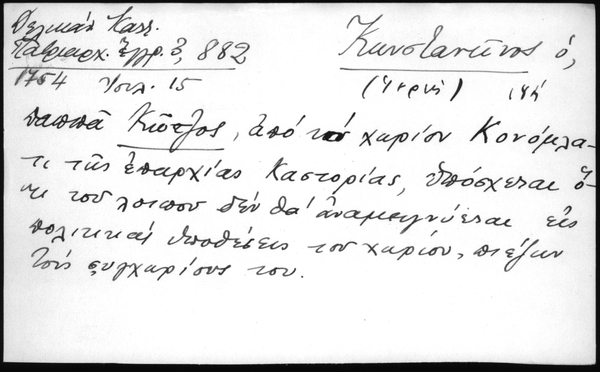 Δελικάν Καν.
Πατριαρχ. Ἔγγρ. 3, 882
1754 Ἰουλ. 15
Κωνσταντῖνος ὁ,
υἱὸς
παππᾶ Κιότζος, ἀπό τό χωρίον Κονόμλα-
τι τῆς ἐπαρχίας Καστορίας, ὑπόσχεται ὅ-
τι τοῦ λοιποῦ δέν θά ἀναμειγνύεται εἰς
πολιτικάς ὑποθέσεις τοῦ χωρίου, πιέζων
τούς συγχωρίους του.